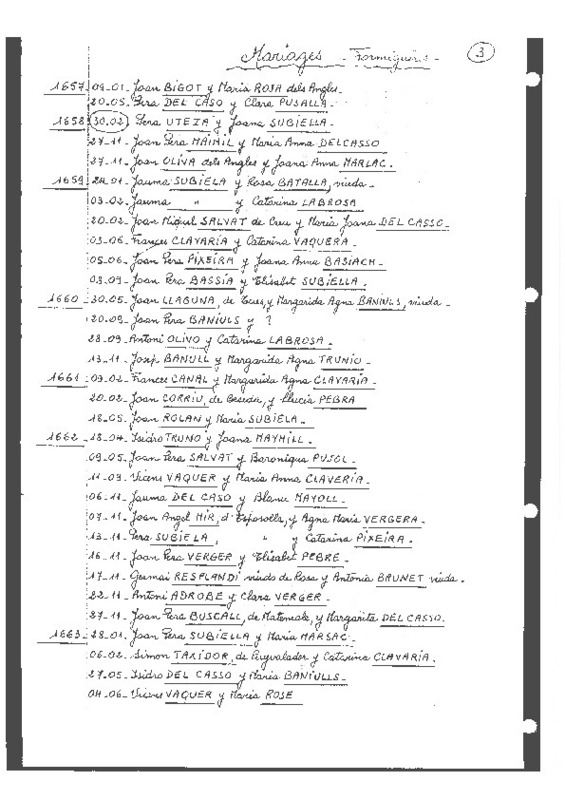 Mariages - Formiguères - 3
1657 09-01- Joan BIGOT y Maria ROSA dels Angles-
20-05- Pera DEL CASO y Clara PUJALLA-
1658 30.02- Pera UTEZA y Joana SUBIELLA-
27-11- Joan Pera MAIHIL y Maria Anna DELCASSO
27-11- Joan OLIVA dels Angles y Joana Anna MARLAC.
1659 24-01- Jauma SUBIELA y Rosa BATALLA, viuda-
03-02- Jauma " y Catarina LABROSA
20-02- Joan Miquel SALVAT de Creu y Maria Joana DEL CASSO-
03-06- Frances CLAVARIA y Catarina VAQUERA-
05-06- Joan Pera PIXEIRA y Joana Anna BASIACH-
03-09- Joan Pera BASSIA y Elisabet SUBIELLA-
1660 30.05- Joan LLAGUNA, de y Margarida Agna BANIULS, viuda-
20-09- Joan Pera BANIULS y ?
28-09- Antoni OLIVO y Catarina LABROSA.
13-11- Josep BANULL y Margarida Agna TRUNIO-
1661 09-02- Frances CANAL y Margarida Agna CLAVARIA-
20-02- Joan CORRIU, de Ceseda, y Llucia PEBRA
18-05- Joan ROLAN y Maria SUBIELA-
1662 18-04- Isidro TRUNO y Joana MAYHILL.
09-05- Joan Pera SALVAT y Baroniqua PUJOL-
11-09- Vicens VAQUER y Maria Anna CLAVERIA-
06-11- Jauma DEL CASO y Blanca MAYOLL-
07-11- Joan Angel MIR, d'Esposolla, y Agna Maria VERGERA-
13-11- Pera SUBIELA, " y Catarina PIXEIRA.
16-11- Joan Pera VERGER y Elisabet PEBRE-
17-11- Germai RESPLANDI viudo de Rosa y Antonia BRUNET viuda.
22-11- Antoni ADROBE y Clara VERGER-
27-11- Joan Pera BUSCALL, de Matemale, y Margarita DEL CASSO.
1663 28-01- Joan Pera SUBIELLA y Maria MARSAC-
06-02- Simon TAXIDOR, de Puyvalador y Catarina CLAVARIA.
27-05- Isidro DEL CASSO y Maria BANIULLS-
04-06- Vicens VAQUER y Maria ROSE